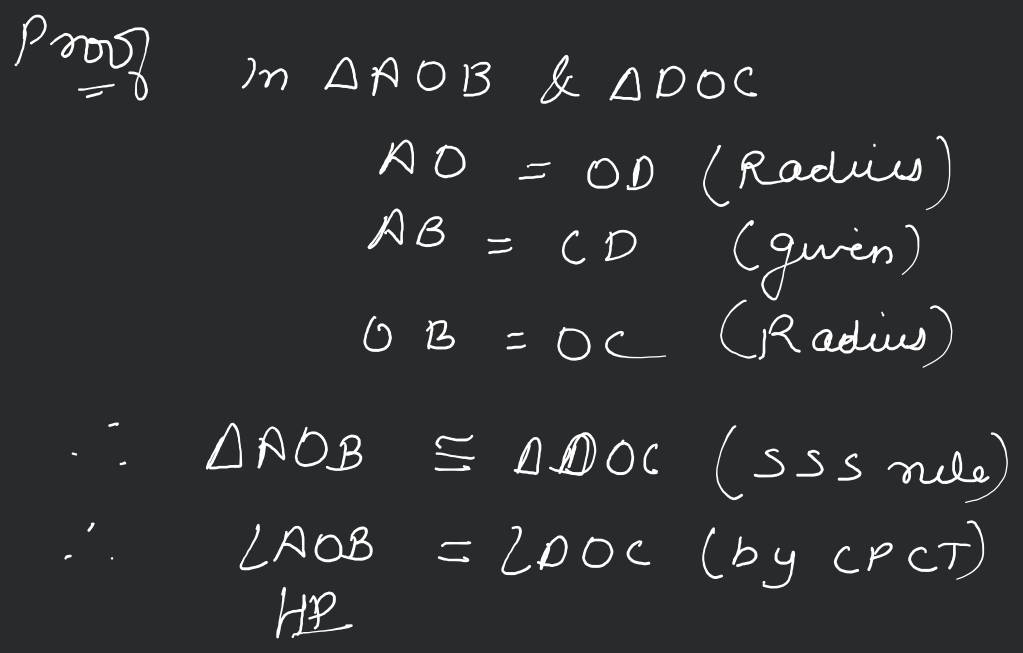 Proof
In ΔAOB & ΔDOC
AO = OD (Radius)
AB = CD (given)
OB = OC (Radius)
∴ ΔAOB ≅ ΔDOC (SSS rule)
∴ ∠AOB = ∠DOC (by CPCT)
HP